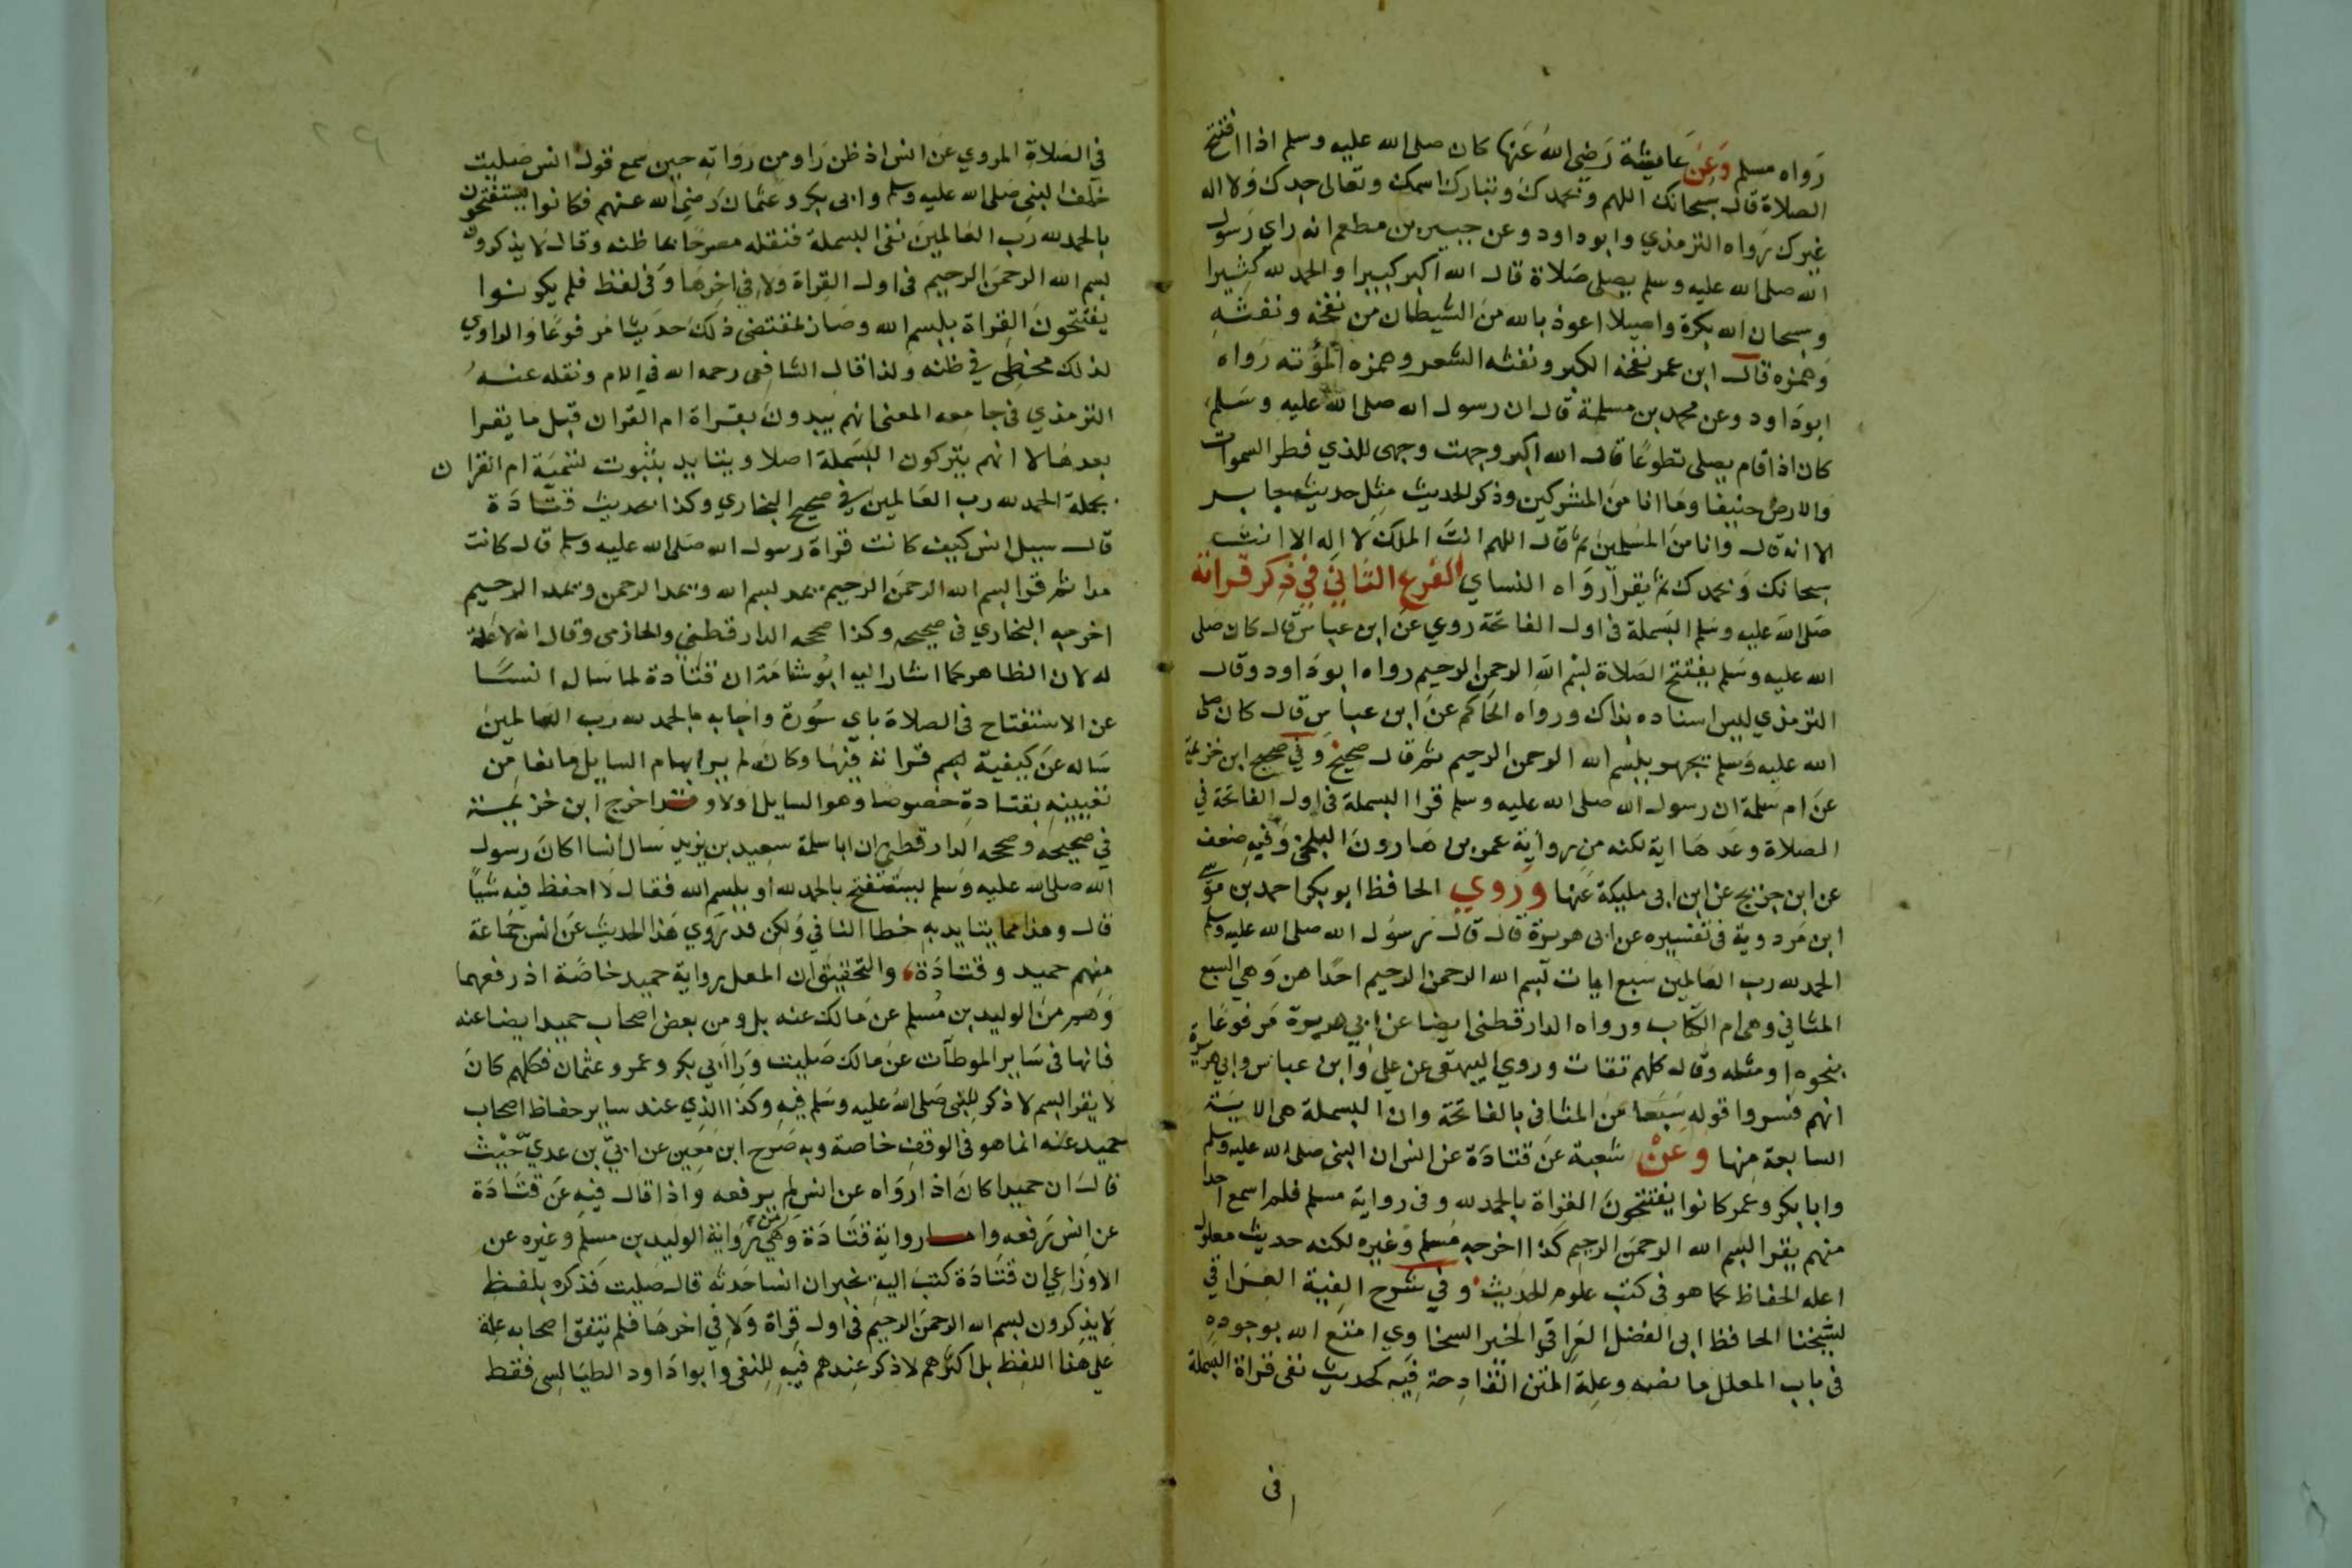 رواه مسلم وعن عايشة رضي الله عنها كان صلى الله عليه وسلم اذا افتتح
الصلاة قال سبحانك اللهم وبحمدك وتبارك اسمك وتعالى جدك ولا اله
غيرك رواه الترمذي وابو داود وعن جبير بن مطعم انه راي رسول
الله صلى الله عليه وسلم يصلى صلاة قال الله اكبر كبيرا والحمد لله كثيرا
وسبحان الله بكرة واصيلا اعوذ بالله من الشيطان من نفخه ونفثه
وهمزه قال ابن عمر نفخه الكبر ونفثه الشعر وهمزه المؤته رواه
ابو داود وعن محمد بن مسلمة قال ان رسول الله صلى الله عليه وسلم
كان اذا قام يصلى تطوعا قال الله اكبر وجهت وجهى للذي فطر السموات
والارض حنيفا وما انا من المشركين وذكر الحديث مثل حديث جابر
الا انه قال وانا من المسلمين ثم قال اللهم انت الملك لا اله الا انت
سبحانك وبحمدك ثم يقرا رواه النساي الفرع الثاني في ذكر قراته
صلى الله عليه وسلم البسملة فى اول الفاتحة روي عن ابن عباس قال كان صلى
الله عليه وسلم يفتتح الصلاة بسم الله الرحمن الرحيم رواه ابو داود وقال
الترمذي ليس اسناده بذاك ورواه الحاكم عن ابن عباس قال كان صلى
الله عليه وسلم يجهر ببسم الله الرحمن الرحيم ثم قال صحيح وفي صحيح ابن خزيمة
عن ام سلمة ان رسول الله صلى الله عليه وسلم قرا البسملة فى اول الفاتحة في
الصلاة وعدها اية لكنه من رواية عمر بن هارون البلخي وفيه ضعف
عن ابن جريج عن ابن ابى مليكة عنها وروي الحافظ ابو بكر احمد بن موسى
ابن مردوية فى تفسيره عن ابى هريرة قال قال رسول الله صلى الله عليه وسلم
الحمد لله رب العالمين سبع ايات بسم الله الرحمن الرحيم احداهن وهي السبع
المثاني وهى ام الكتاب ورواه الدارقطنى ايضا عن ابي هريرة مرفوعا
بنحوه او مثله وقال كلهم ثقات وروي البيهقى عن علي وابن عباس وابي هريرة
انهم فسروا قوله سبعا من المثانى بالفاتحة وان البسملة هى الاية
السابعة منها وعن شعبة عن قتادة عن انس ان النبى صلى الله عليه وسلم
وابا بكر وعمر كانوا يفتتحون القراة بالحمد لله وفى رواية مسلم فلم اسمع احدا
منهم يقرا بسم الله الرحمن الرحيم كذا اخرجه مسلم وغيره لكنه حديث معلول
اعله الحفاظ كما هو فى كتب علوم الحديث وفي شرح الفية العراقي
لشيخنا الحافظ ابى الفضل العراقي الخير السخاوي امتع الله بوجوده
فى باب المعلل ما نصه وعلة المتن القادحة فيه كحديث نفى قراة البسملة
فى
في الصلاة المروي عن انس اذ ظن راو من رواته حين سمع قول انس صليت
خلف النبى صلى الله عليه وسلم وابى بكر وعثمان رضي الله عنهم فكانوا يستفتحون
بالحمد لله رب العالمين نفى البسملة فنقله مصرحا بما ظنه وقال لا يذكرون
بسم الله الرحمن الرحيم فى اول القراة ولا في اخرها وفى لفظ فلم يكونوا
يفتتحون القراة ببسم الله وصار لمقتضى ذلك حديثا مرفوعا والراوي
لذلك مخطى في ظنه ولذا قال الشافعى رحمه الله في الام ونقله عنه
الترمذي فى جامعه المعنى انهم يبدون بقراة ام القران قبل ما يقرا
بعدها لا انهم يتركون البسملة اصلا ويتايد بثبوت تسمية ام القران
بجملة الحمد لله رب العالمين في صحيح البخاري وكذا بحديث قتادة
قال سيل انس كيف كانت قراة رسول الله صلى الله عليه وسلم قال كانت
مدا ثم قرا بسم الله الرحمن الرحيم يمد بسم الله ويمد الرحمن ويمد الرحيم
اخرجه البخاري فى صحيحه وكذا صححه الدارقطني والحازمى وقال انه لا علة
له لان الظاهر كما اشار اليه ابو شامة ان قتادة لما سال انسا
عن الاستفتاح فى الصلاة باي سورة واجابه بالحمد لله رب العالمين
ساله عن كيفية قراته فيها وكان لم ير ابهام السايل مانعا من
تعيينه بقتادة خصوصا وهو السايل اولا وقد اخرج ابن خزيمة
في صحيحه وصححه الدارقطني ان ابا سلمة سعيد بن يزيد سال انسا اكان رسول
الله صلى الله عليه وسلم يستفتح بالحمد لله او ببسم الله فقال لا احفظ فيه شيا
قال وهذا مما يتايد به خطا النافي ولكن قد روي هذا الحديث عن انس جماعة
منهم حميد وقتادة والتحقيق ان المعل رواية حميد خاصة اذ رفعها
وهم من الوليد بن مسلم عن مالك عنه بل ومن بعض اصحاب حميد ايضا عنه
فانها فى ساير الموطآت عن مالك صليت ورا ابي بكر وعمر وعثمان فكلهم كان
لا يقرا بسم لا ذكر للنبى صلى الله عليه وسلم فيه وكذا الذي عند ساير حفاظ اصحاب
حميد عنه انما هو فى الوقف خاصة وبه صرح ابن معين عن ابن عدي حيث
قال ان حميدا كان اذا رواه عن انس لم يرفعه واذا قال فيه عن قتادة
عن انس رفعه واما رواية قتادة وهي من رواية الوليد بن مسلم وغيره عن
الاوزاعي ان قتادة كتب اليه يخبره ان انسا حدثه قال صليت فذكره بلفظ
لا يذكرون بسم الله الرحمن الرحيم فى اول قراة ولا في اخرها فلم يتفق اصحابه عنه
علي هذا اللفظ بل اكثرهم لا ذكر عندهم فيه للنفى وابوا داود الطيالسى فقط